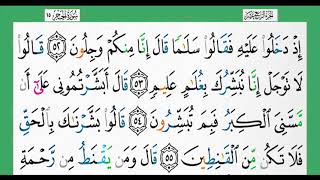 إِذْ دَخَلُوا۟ عَلَيْهِ فَقَالُوا۟ سَلَـٰمًا قَالَ إِنَّا مِنكُمْ وَجِلُونَ ٥٢ قَالُوا۟
لَا تَوْجَلْ إِنَّا نُبَشِّرُكَ بِغُلَـٰمٍ عَلِيمٍ ٥٣ قَالَ أَبَشَّرْتُمُونِى عَلَىٰٓ أَن
مَّسَّنِىَ ٱلْكِبَرُ فَبِمَ تُبَشِّرُونَ ٥٤ قَالُوا۟ بَشَّرْنَـٰكَ بِٱلْحَقِّ
فَلَا تَكُن مِّنَ ٱلْقَـٰنِطِينَ ٥٥ قَالَ وَمَن يَقْنَطُ مِن رَّحْمَةِ